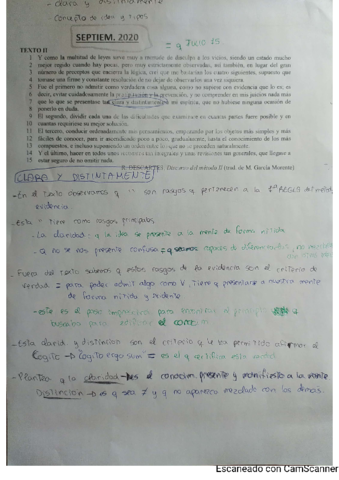 - clara y distintamente
Concepto de idea y tipos
SEPTIEM. 2020
= q JULIO 15
TEXTO II
1 Y como la multitud de leyes sirve muy a menudo de disculpa a los vicios, siendo un estado mucho
2 mejor regido cuando hay pocas, pero muy estrictamente observadas, así también, en lugar del gran
3 número de preceptos que encierra la lógica, creí que me bastarían los cuatro siguientes, supuesto que
4 tomase una firme y constante resolución de no dejar de observarlos una vez siquiera
5 Fue el primero no admitir como verdadera cosa alguna, como no supiese con evidencia que lo es; es
6 decir, evitar cuidadosamente la precipitación y la prevención, y no comprender en mis juicios nada más
7 que lo que se presentase tan clara y distintamente a mi espíritu, que no hubiese ninguna ocasión de
8 ponerlo en duda.
9 El segundo, dividir cada una de las dificultades que examinare en cuantas partes fuere posible y en
10 cuantas requiriese su mejor solución.
11 El tercero, conducir ordenadamente mis pensamientos, empezando por los objetos más simples y más
12 fáciles de conocer, para ir ascendiendo poco a poco, gradualmente, hasta el conocimiento de los más
13 compuestos, e incluso suponiendo un orden entre los que no se preceden naturalmente.
14 Y el último, hacer en todos unos recuentos tan integrales y unas revisiones tan generales, que llegase a
15 estar seguro de no omitir nada.
R. DESCARTES, Discurso del método II (trad. de M. García Morente)
CLARA Y DISTINTAMENTE
- En el texto observamos q son rasgos q pertenecen a la 1ª REGLA del método
evidencia.
- Esta tiene como rasgos principales
- La claridad: q la idea se presente a la mente de forma nítida
- Q no se nos presente confusa = q seamos capaces de diferenciarlas, no mezclarla
- Fuera del texto sabemos q estos rasgos de la evidencia son el criterio de
verdad = para poder admitir algo como V, tiene q presentarse a nuestra mente
de forma nítida y evidente
- este es el paso
- Esta claridad y distinción son el criterio q le ha permitido afirmar el
Cogito → "Cogito ergo sum" = es el q
- Plantea q la claridad → es el conocim. presente y manifiesto a la mente
Distinción → es q sea ≠ y q no aparezca mezclado con las demás.
Escaneado con CamScanner